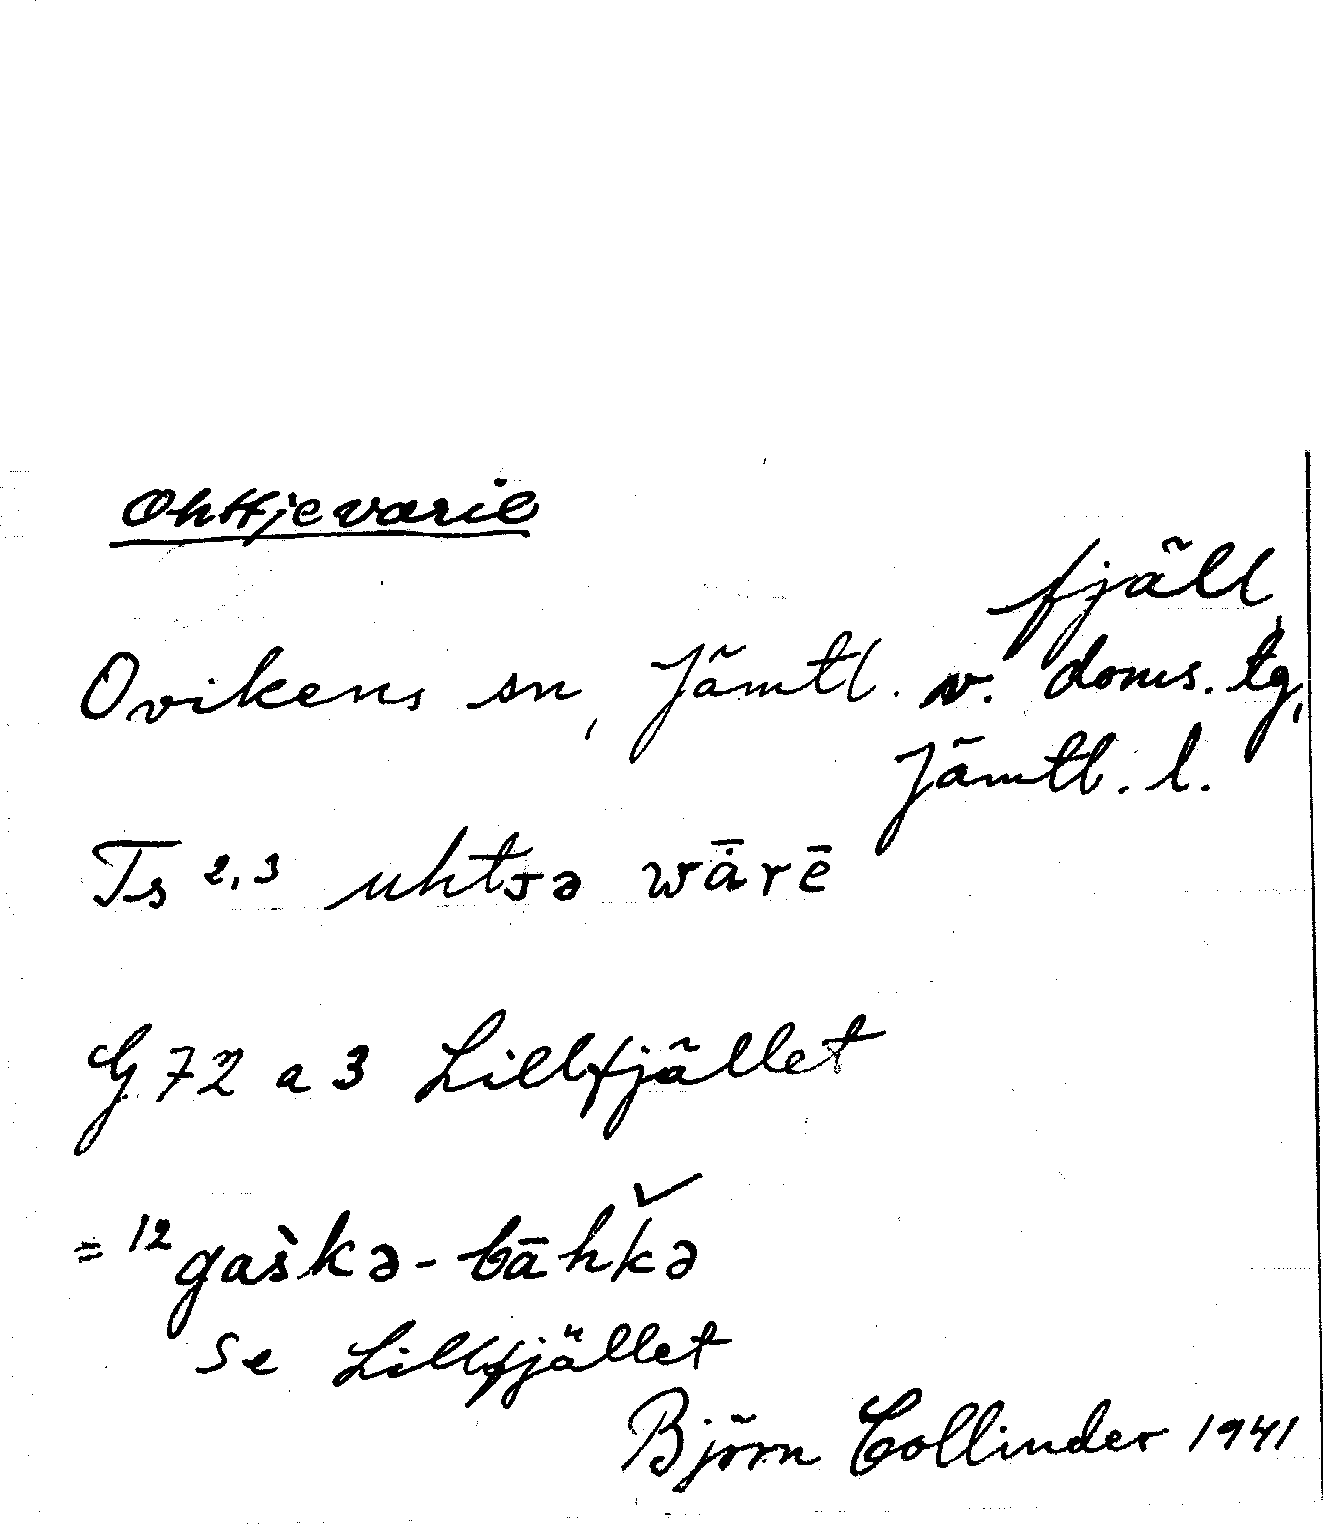 Ohttjevarie
fjäll
Ovikens sn, Jämtl. v. doms. tg,
Jämtl. l.
Ts 2,3 uhtsə wā̇rē
G 72 a 3 Lillfjället
= 12 gaškə-bāhkə
se Lillfjället
Björn Collinder 1941